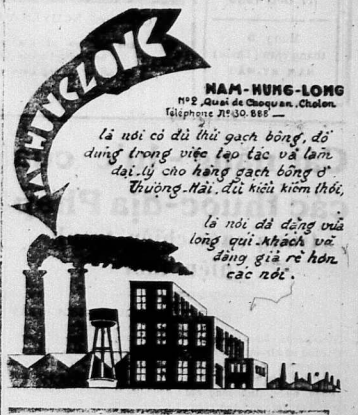 NAM-HUNG-LONG
NAM-HUNG-LONG
Nº2, Quai de Caoquan, Cholon
Téléphone Nº30.888 —
là nơi có đủ thứ gạch bông, đồ
dùng trong việc tạp tác và làm
đại-lý cho hãng gạch bông ở
Thường-Hải, đủ kiểu kiêm thời,
là nơi đả đặng vừa
lòng quí-khách và
đặng giá rẻ hơn
các nơi.